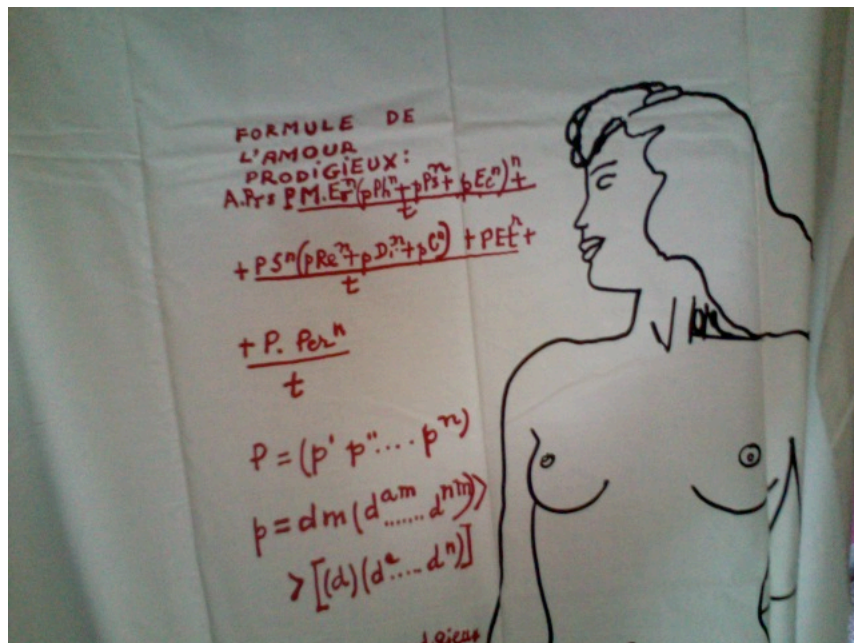 FORMULE DE
L'AMOUR
PRODIGIEUX:
A.Prs PM.Erⁿ(pPhⁿ+pPsⁿ+pEcⁿ)ⁿ+
t
+PSⁿ(pReⁿ+pDiⁿ+pCⁿ)+PEtⁿ+
t
+P.Perⁿ
t
P=(p' p''....pⁿ)
p=dm(dᵃᵐ.......dⁿᵐ)>
>[(d)(dᵃ....dⁿ)]